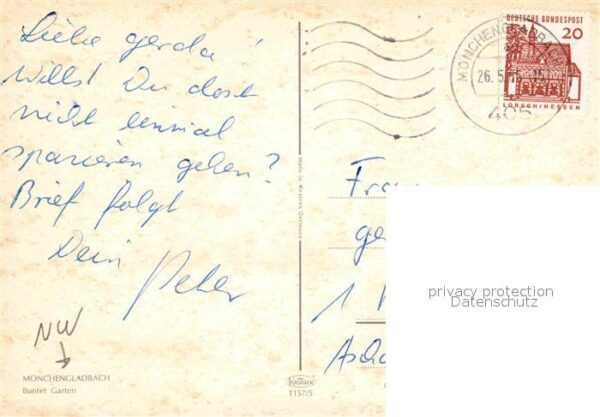 Liebe Gerda!
Willst Du dort
nicht einmal
spazieren gehen?
Brief folgt
Dein Peter
NW
MÖNCHENGLADBACH
Bunter Garten
Made in Western Germany
KRÜGER
1157/5
DEUTSCHE BUNDESPOST
20
LORSCH/HESSEN
MÖNCHENGLADBACH
26.5.
405
Frau
ge
1
Asch
privacy protection
Datenschutz